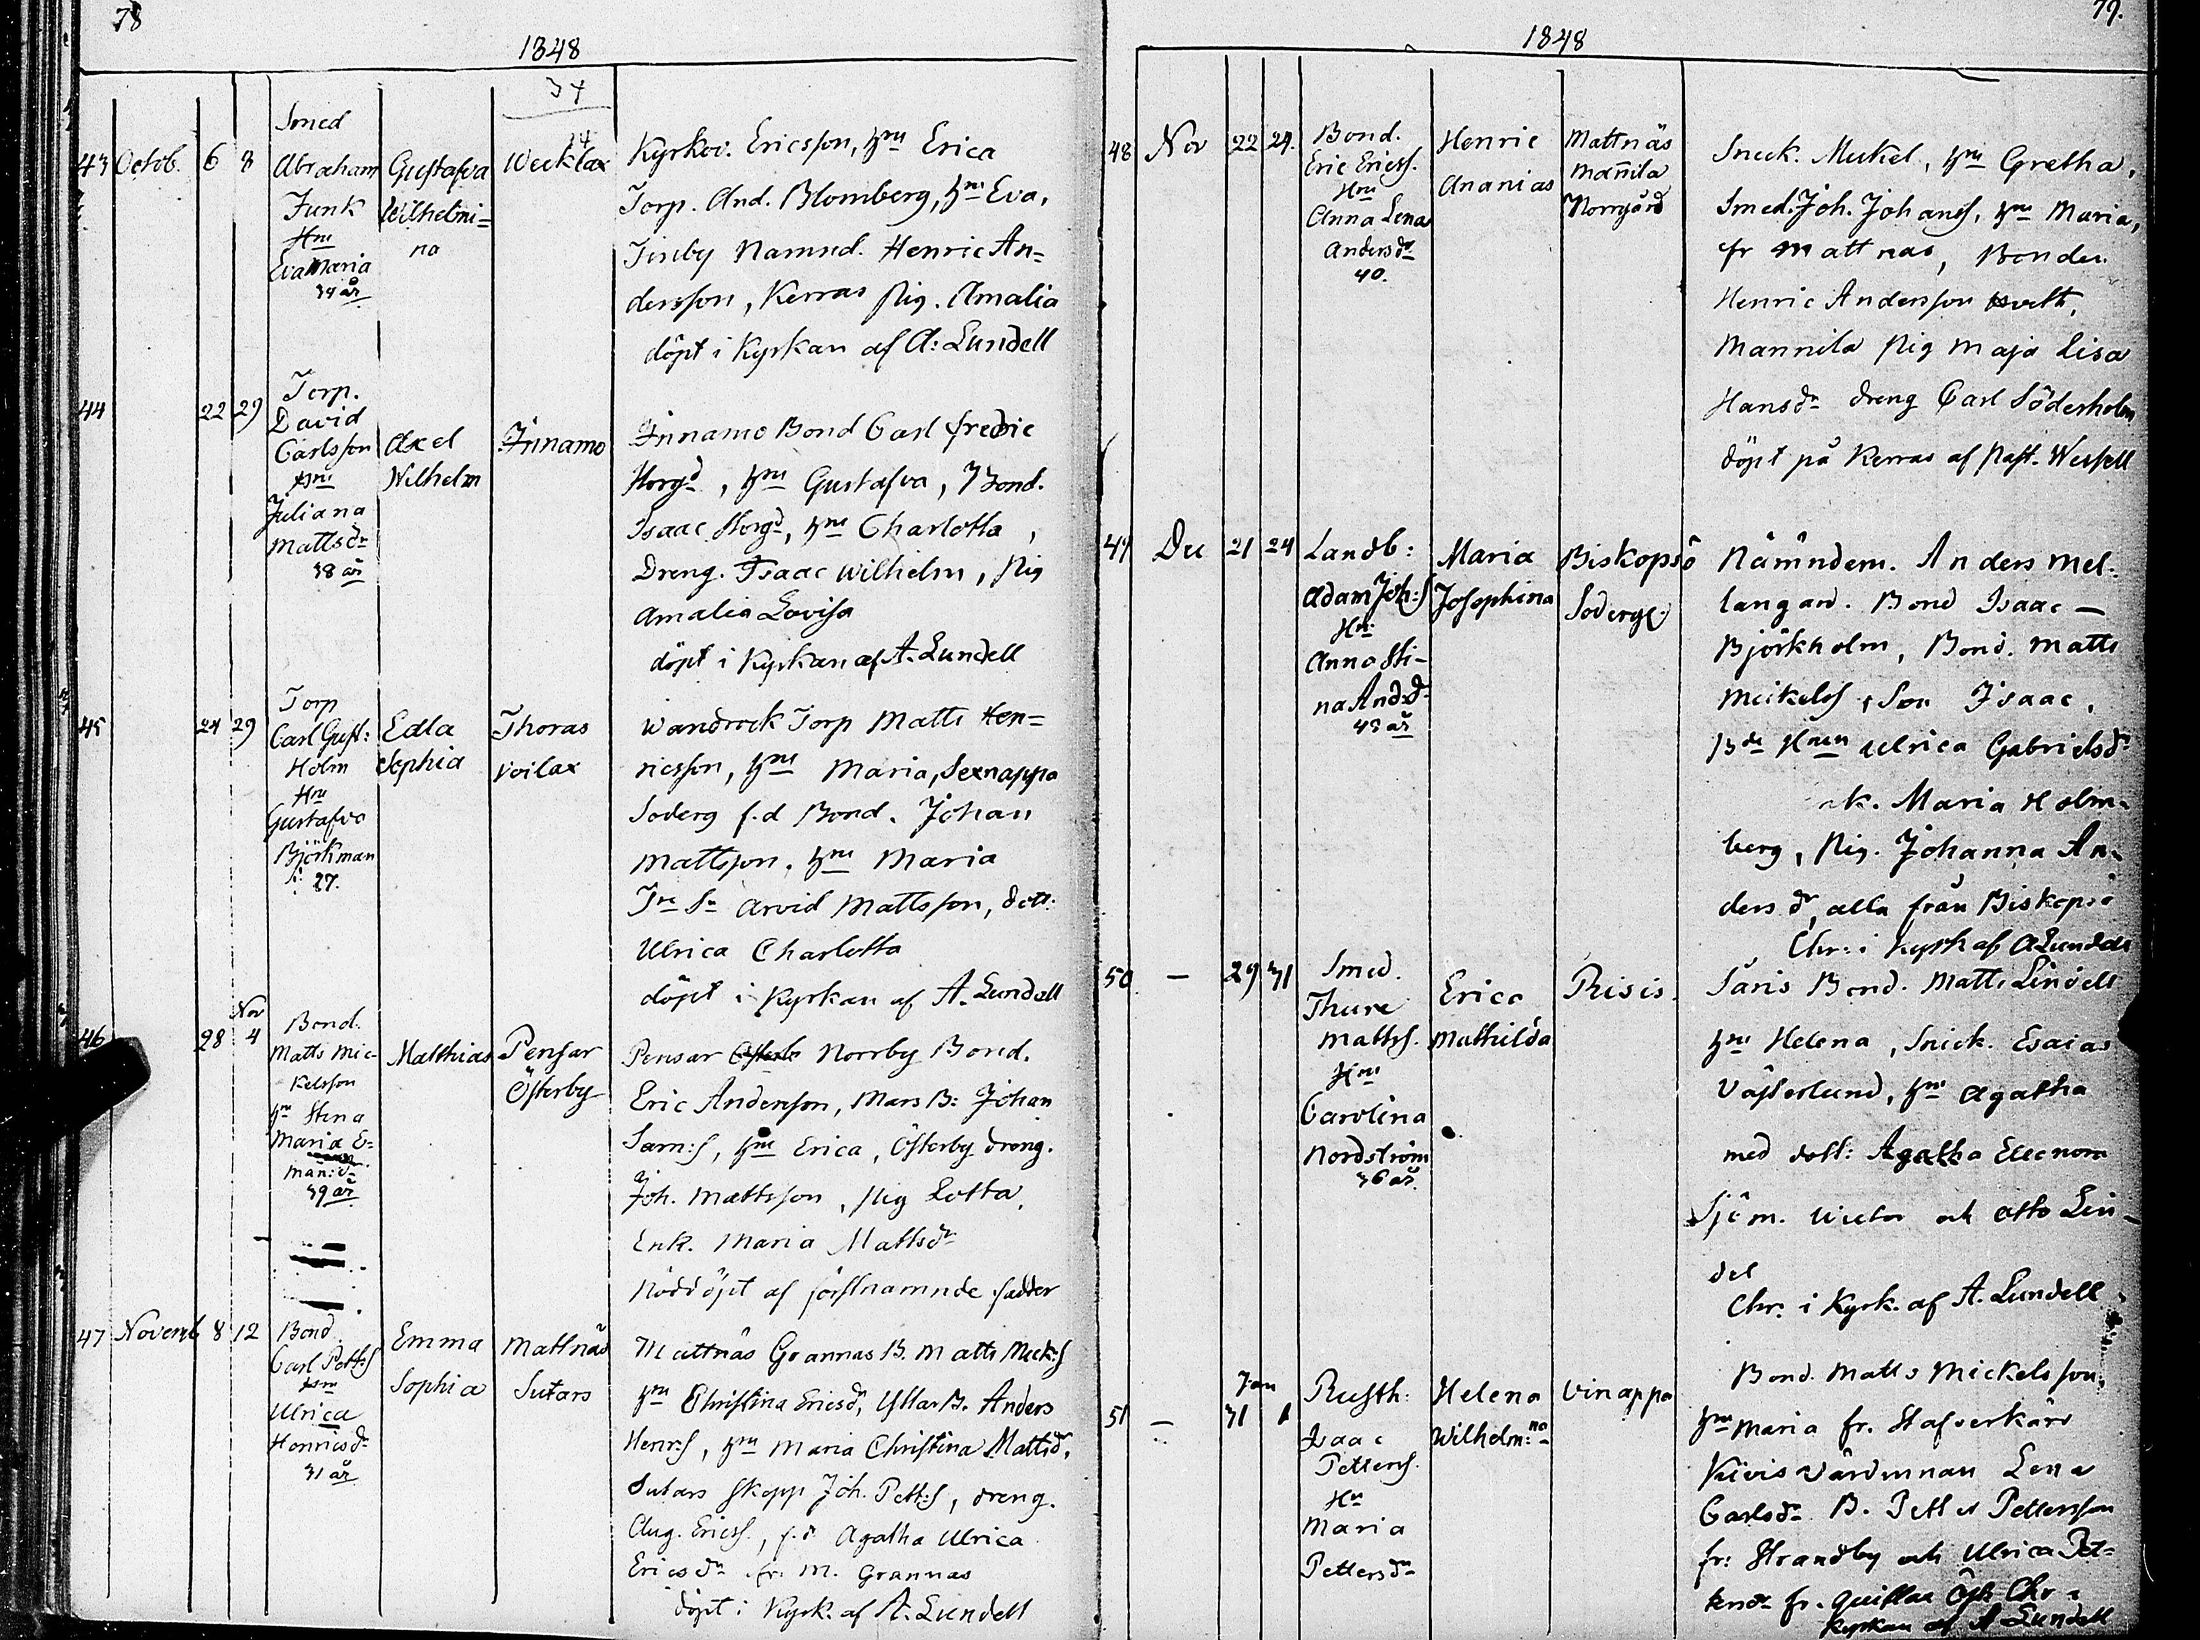 78
1848
34
43 Octob. 6 8
Smed
Abraham
Funk
Hru
Eva Maria
34 år
Gustafva
Wilhelmi=
na
Wecklax
Kyrkov. Ericsson, hru Erica
Torp. And. Blomberg, hru Eva,
Finby Nämnd. Henric An=
dersson, Kerras pig. Amalia
döpt i Kyrkan af A: Lundell
44 22 29
Torp.
David
Carlsson
Hru
Juliana
Mattsdr
38 år
Axel
Wilhelm
Finnamo
Finnamo Bond Carl Fredric
, hru Gustafva, Bond.
Isaac, hru Charlotta,
Dreng. Isaac Wilhelm, pig
Amalia Lovisa
döpt i Kyrkan af A. Lundell
45 24 29
Torp
Carl Gust:
Holm
Hru
Gustafva
Björkman
27.
Edla
Sophia
Thoras
voilax
Wandrock Torp Matts Hen=
ricsson, hru Maria, Sexnappa
Soderg f.d Bond. Johan
Mattsson, hru Maria
Arvid Mattsson, dott:
Ulrica Charlotta
döpt i Kyrkan af A. Lundell
46 28 Nov 4
Bond.
Matts Mic=
kelsson
hru Stina
Maria E=
man:dr
39 år
Matthias
Pensar
Österby
Pensar Norrby Bond.
Eric Andersson, Mars B: Johan
Sam:s, hru Erica, Österby dreng.
Joh. Mattsson, pig Lotta,
Enk. Maria Mattsdr
Nöddöpt af förstnamnde fadder
47 Novemb 8 12
Bond
Carl Pett:s
Hru
Ulrica
Henricsdr
31 år
Emma
Sophia
Mattnäs
Sutars
Mattnäs Grannas B. Matts Mick:s
hru Christina Ericsdr, Yttar B. Anders
Henr:s, hru Maria Christina Mattsdr,
Sutars skepp Joh. Pett:s, dreng.
Aug. Ericss., f.d. Agatha Ulrica
Ericsdr fr. M. Grannas
döpt i Kyrk. af A. Lundell
79.
1848
48 Nov 22 24.
Bond.
Eric Ericss.
Hru
Anna Lena
Andersdr
40.
Henric
Ananias
Mattnäs
Mannila
Norrgård
Snick. Mickel, hru Gretha,
Smed. Joh. Johanss, hru Maria,
fr Mattnas, Bonden
Henric Andersson
Mannila pig Maja Lisa
Hansdr dreng Carl Söderholm
döpt på Kerras af Past. Wessell
49 Dec 21 24
Landb:
Adam Joh:s
Hru
Anna Sti=
na And:d.
43 år
Maria
Josephina
Biskopsö
Söderg:
Nämndem. Anders Mel=
langard. Bond Isaac —
Björkholm, Bond. Matts
Mickelss, Son Isaac,
Ulrica Gabrielsdr
Maria Holm=
berg, pig. Johanna An=
dersdr, alla från Biskopsö
Chr: i Kyrk af A Lundell
50 — 29 31
Smed.
Thure
Mattss.
Hru
Carolina
Nordström
36 år.
Erica
Mathilda
Risis.
Saris Bond. Matts Lindell
hru Helena, Snick. Esaias
Västerlund, hru Agatha
med dott: Agatha Eleonora
Sjöm. Victor och Otto Lin=
del
Chr. i Kyrk. af A. Lundell
51 — 31 Jan 1
Rusth:
Isaac
Petterss.
Hru
Maria
Pettersdr
Helena
Wilhelm:na
Vinappa
Bond. Matts Mickelsson,
hru Maria fr. Stafverkärs
Kivis Värdinnan Lena
Carlsdr B. Petter Pettersson
fr: Strandby och Ulrica Pet=
tersdr fr. Chr.
Kyrkan af A Lundell